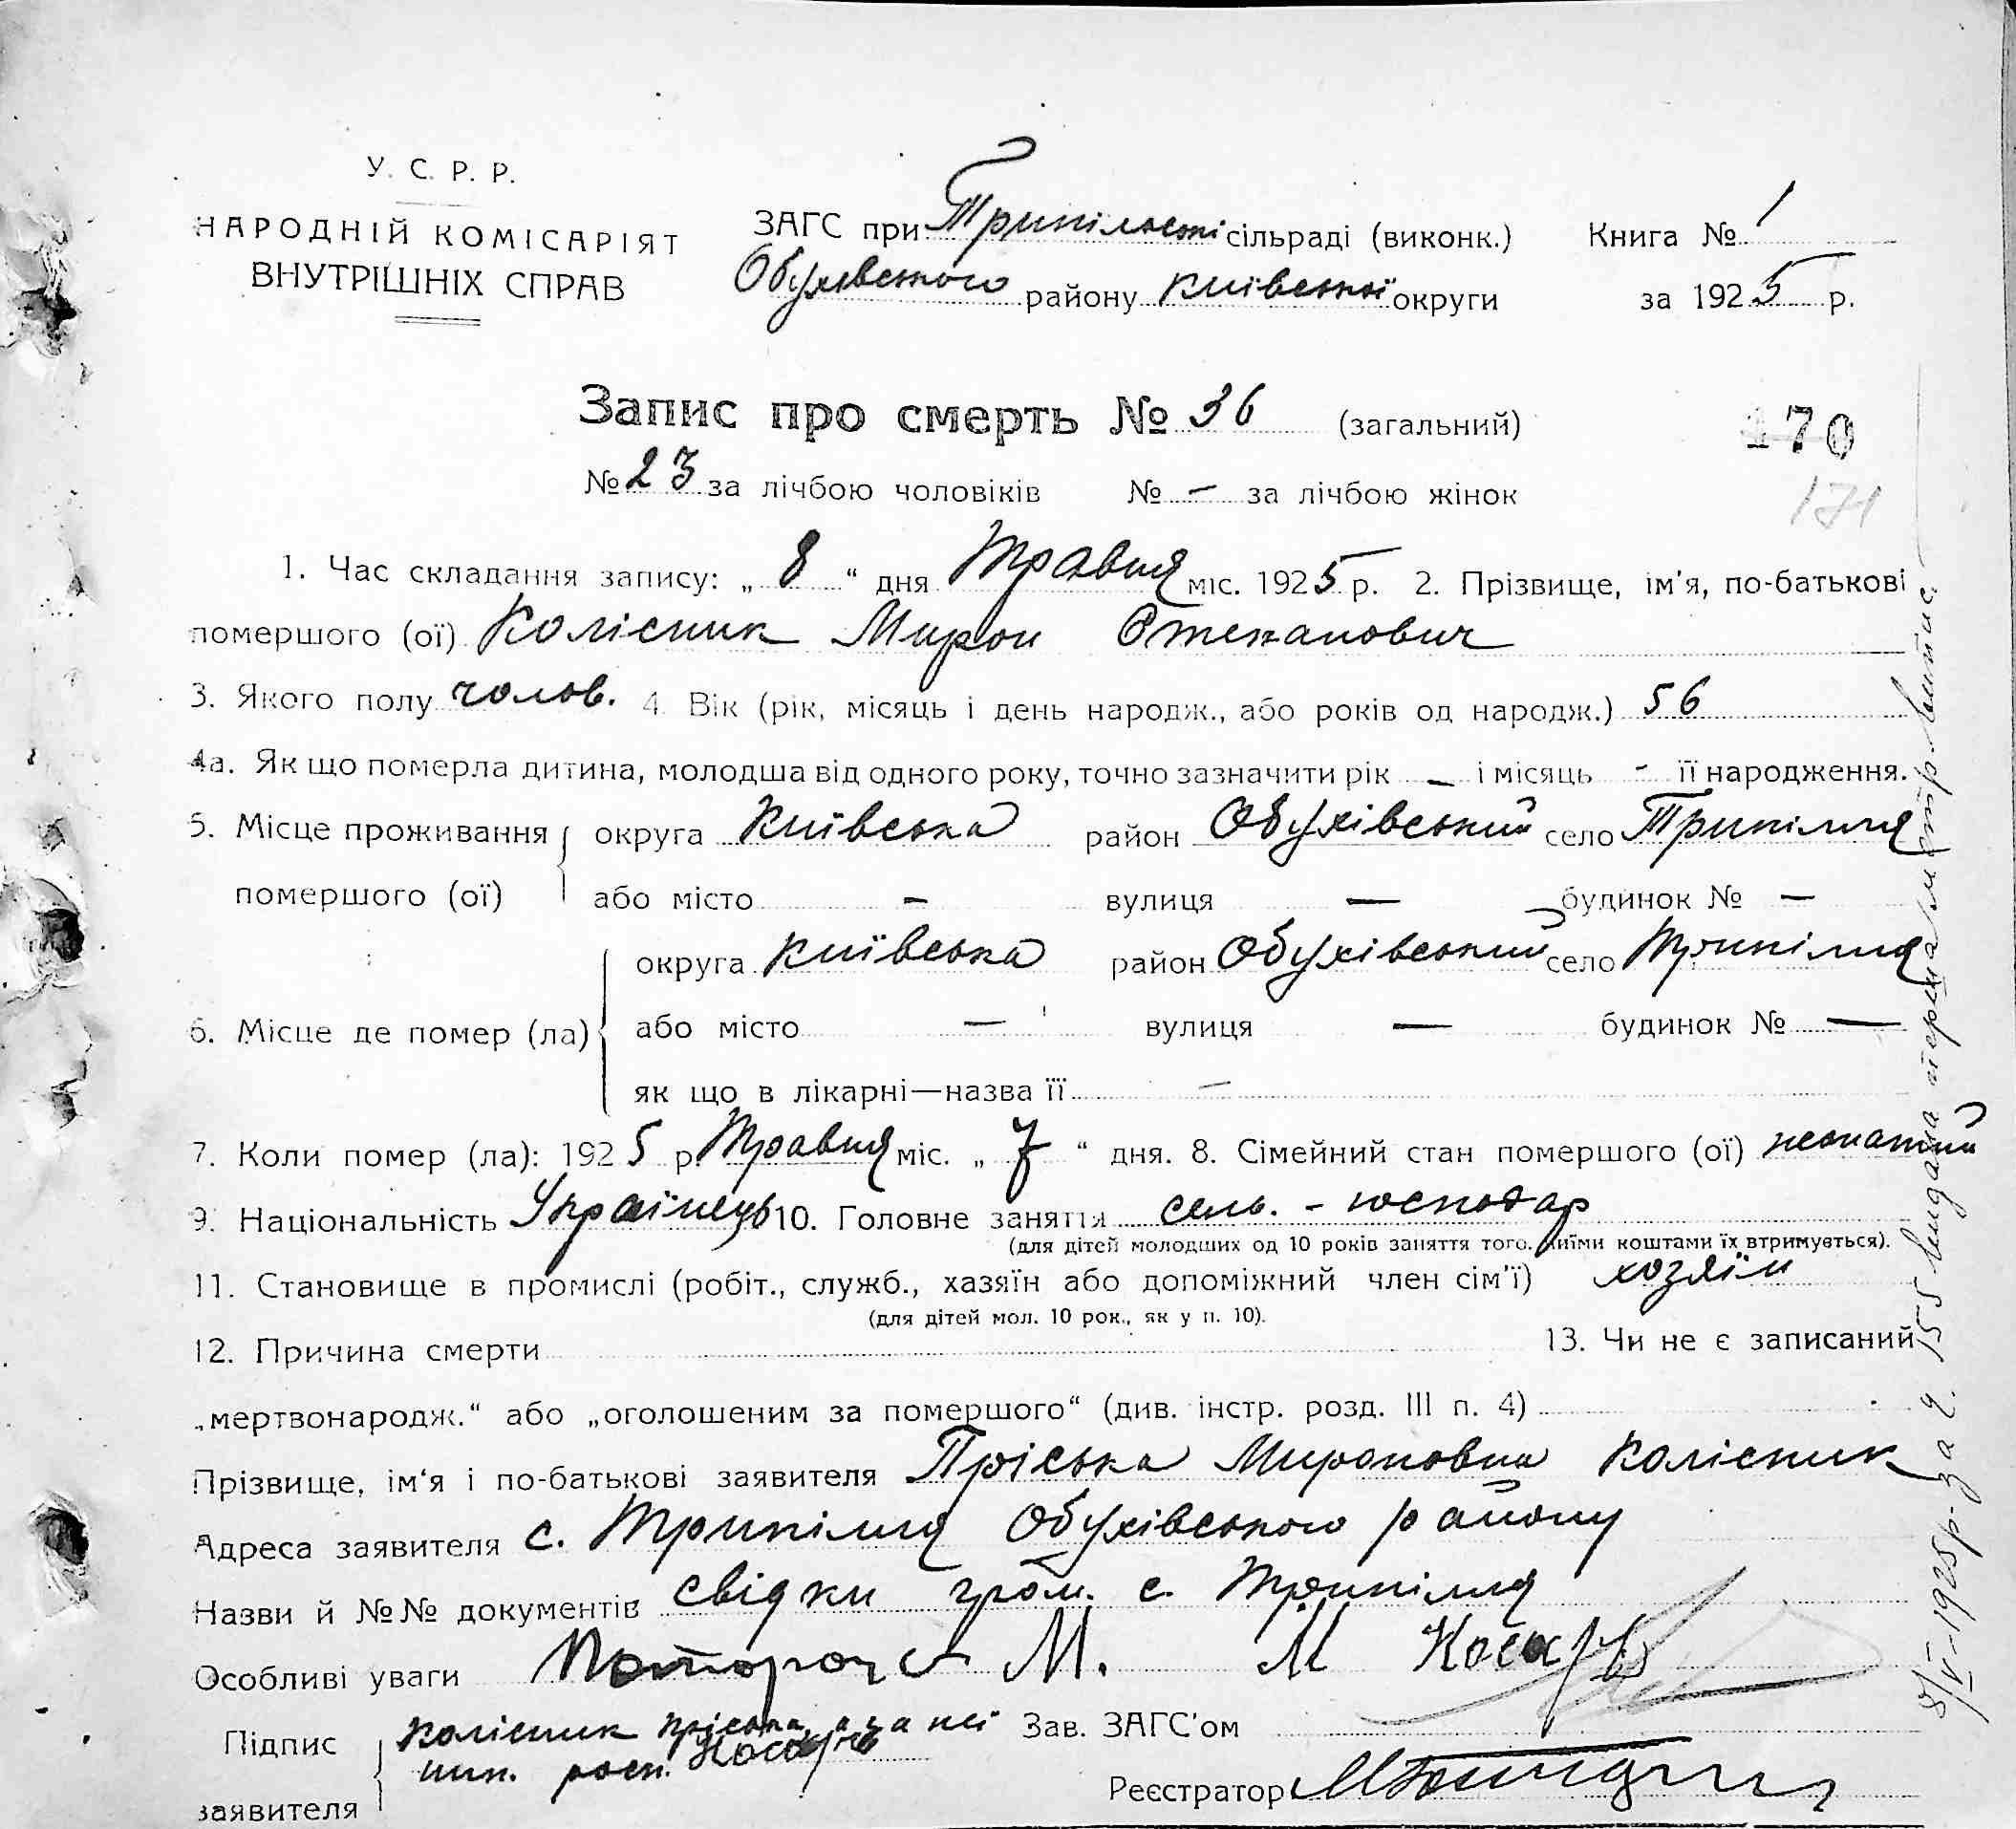 У. С. Р. Р.
НАРОДНІЙ КОМІСАРІЯТ
ВНУТРІШНІХ СПРАВ
ЗАГС при Трипільські сільраді (виконк.)
Обухівського району Київської округи
Книга № 1
за 1925 р.
Запис про смерть № 36 (загальний)
170
№ 23 за лічбою чоловіків № – за лічбою жінок
171
1. Час складання запису: „ 8 “ дня Травня міс. 1925 р. 2. Прізвище, ім'я, по-батькові
помершого (ої) Колісник Мирон Степанович
3. Якого полу чолов. 4 Вік (рік, місяць і день народж., або років од народж.) 56
4а. Як що померла дитина, молодша від одного року, точно зазначити рік – і місяць - її народження.
5. Місце проживання округа Київська район Обухівський село Трипілля
помершого (ої) або місто – вулиця — будинок № —
округа Київська район Обухівський село Трипілля
6. Місце де помер (ла) або місто — вулиця — будинок № —
як що в лікарні—назва її –
7. Коли помер (ла): 1925 р. Травня міс. „ 7 “ дня. 8. Сімейний стан помершого (ої) жонатий
9. Національність Українець 10. Головне заняття сель. - господар
(для дітей молодших од 10 років заняття того, чиїми коштами їх втримується).
11. Становище в промислі (робіт., служб., хазяїн або допоміжний член сім'ї) хозяїн
(для дітей мол. 10 рок., як у п. 10).
12. Причина смерти 13. Чи не є записаний
„мертвонародж.“ або „оголошеним за помершого“ (див. інстр. розд. III п. 4)
Прізвище, ім'я і по-батькові заявителя Пріська Мироновна Колісник
Адреса заявителя с. Трипілля Обухівського району
Назви й №№ документів свідки гром. с. Трипілля
Особливі уваги М. М Косарь
Підпис заявителя Колісник Пріська, а за неї
нип. росп. Косарь
Зав. ЗАГС'ом
Реєстратор
8/V-1925р. за Ч. 155 видана перша метр. витис.